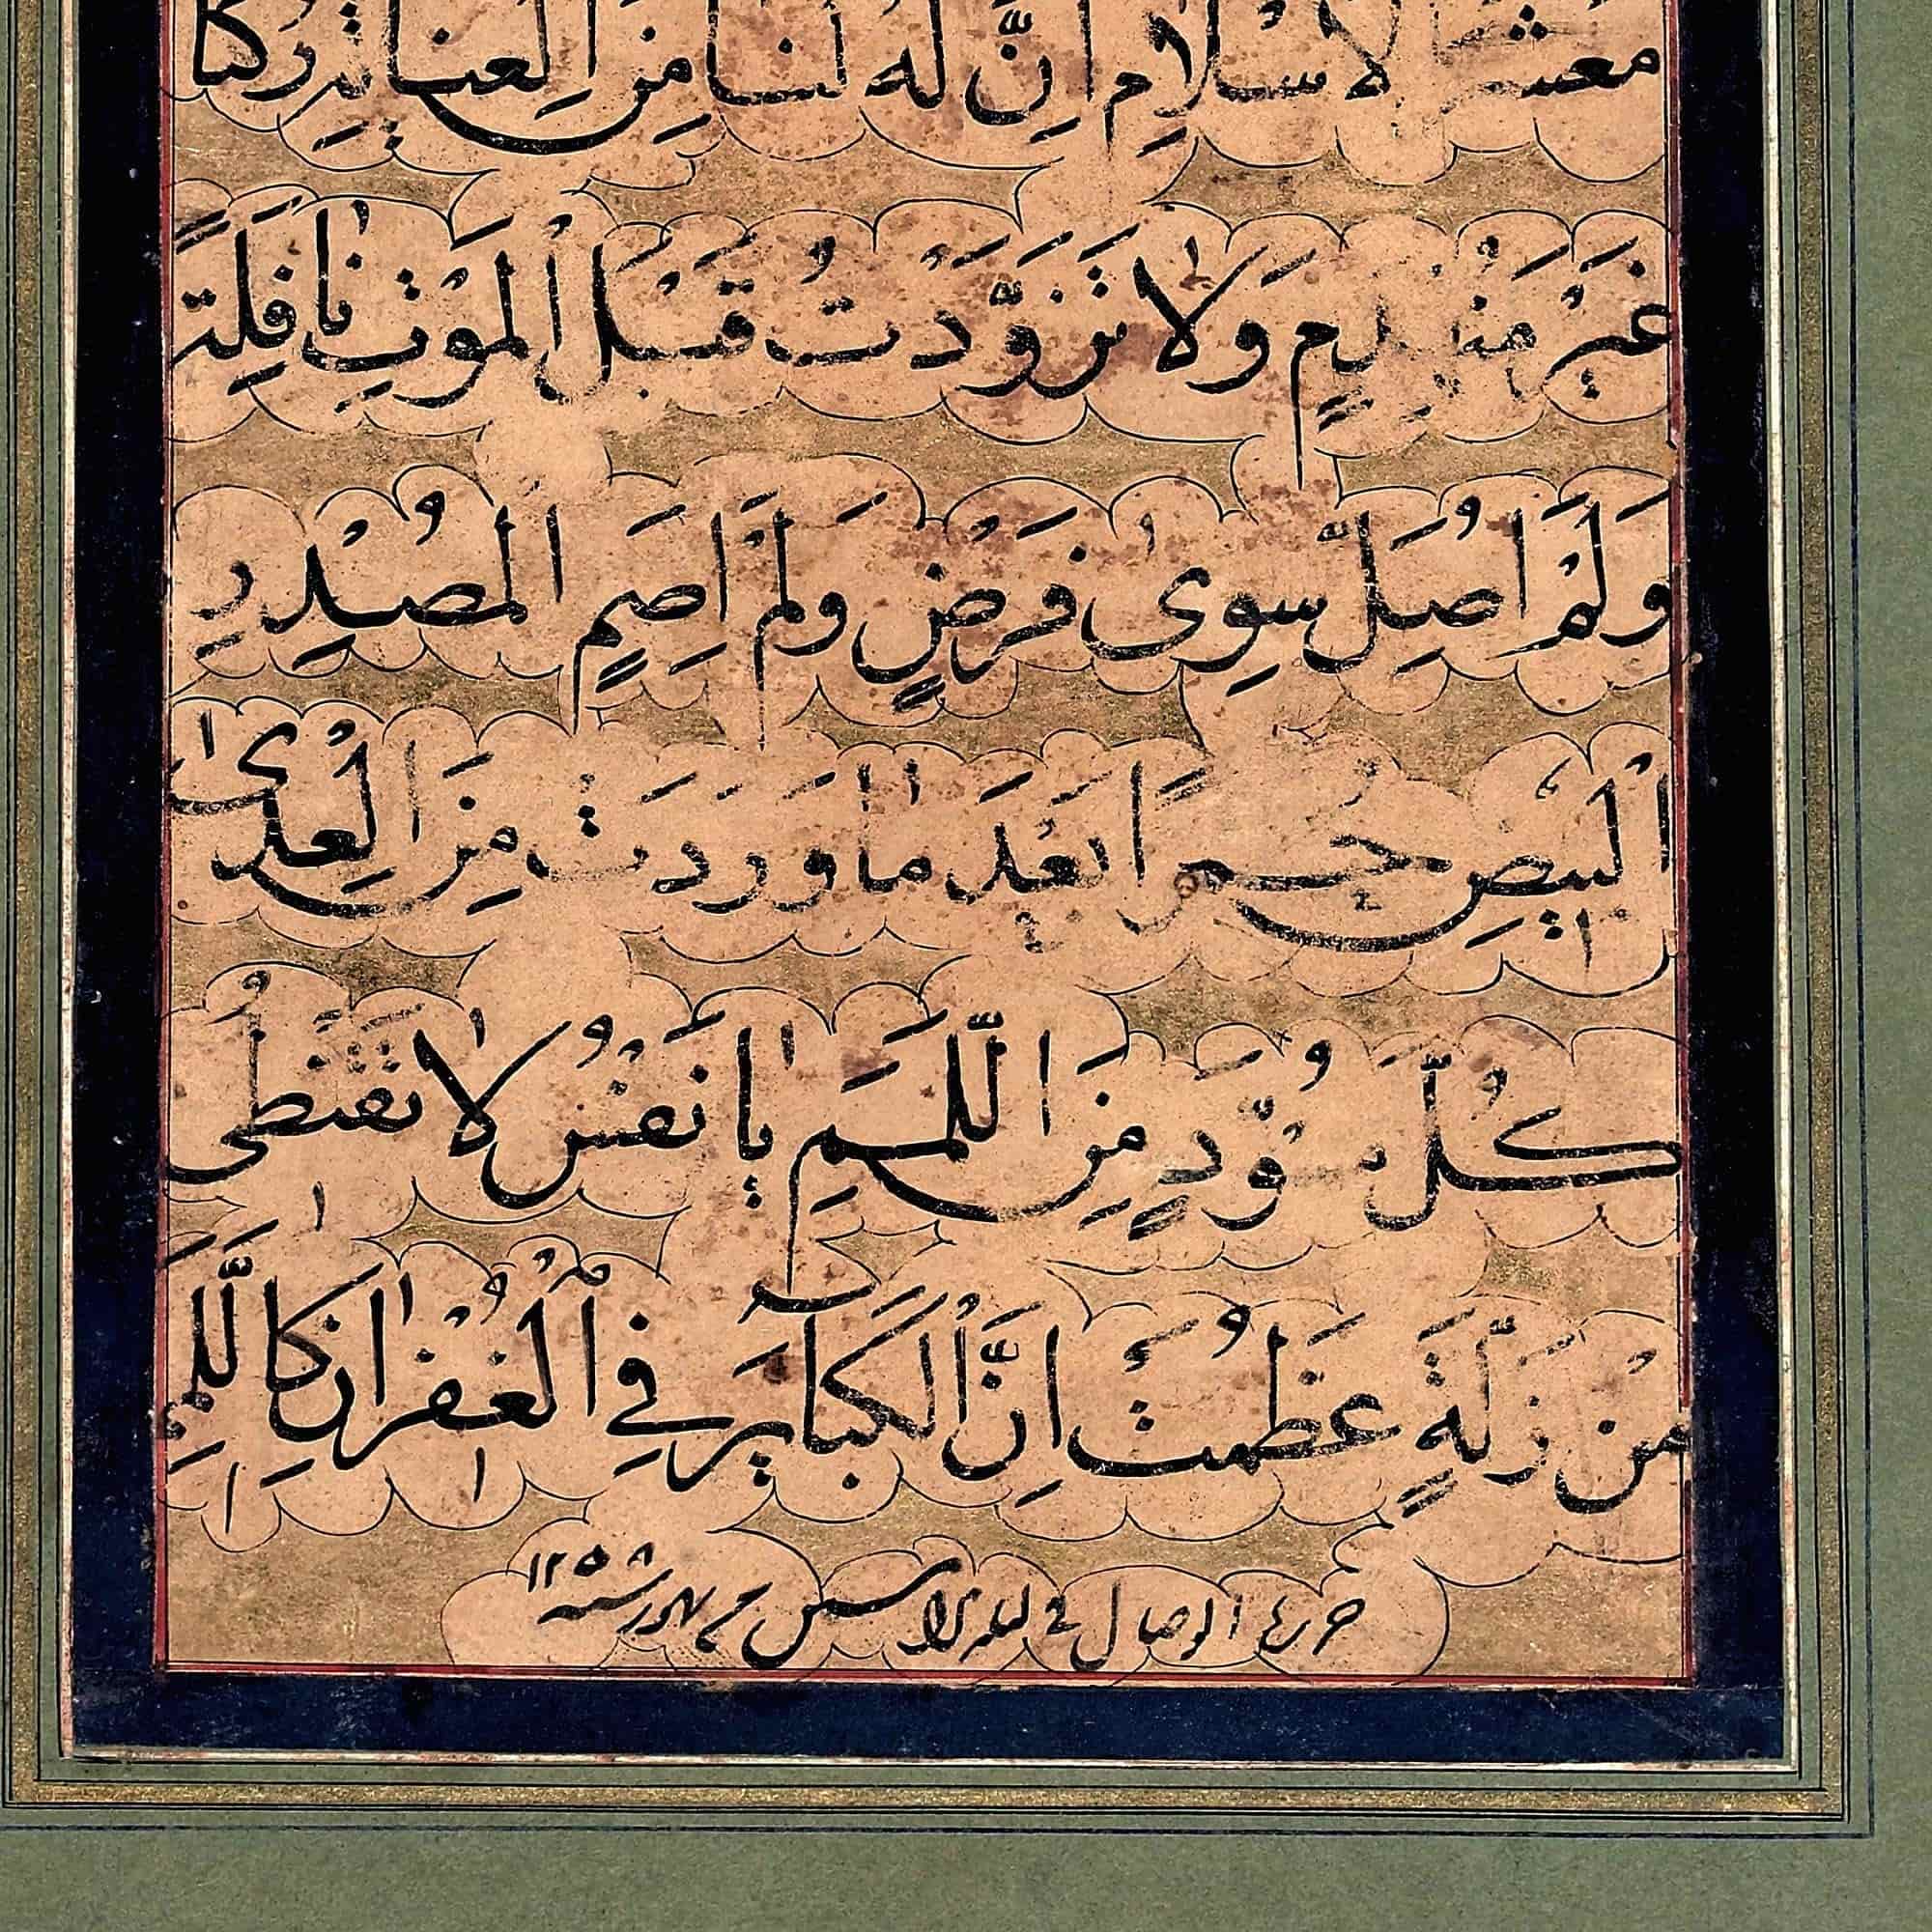 معشر الاسلام ان له لنا من العناية ركنا
غَيْرَ مُنْهَدِمٍ وَلا تَزَوَّدْتُ قَبْلَ المَوْتِ نافِلَةً
وَلَمْ اُصَلِّ سِوى فَرْضٍ وَلَمْ اَصُمِ المُصْدِرِ
البيضِ حُمْرًا بَعْدَ ما وَرَدَتْ مِنَ العِدى
كُلَّ مُسْوَدٍّ مِنَ اللِّمَمِ يا نَفْسُ لا تَقْنَطى
مِنْ زَلَّةٍ عَظُمَتْ اِنَّ الكَبائِرَ فِي الغُفْرانِ كَاللَّمَمِ
حرره الوصال في ليله الاثنين شهور سنه ١٢٥٨